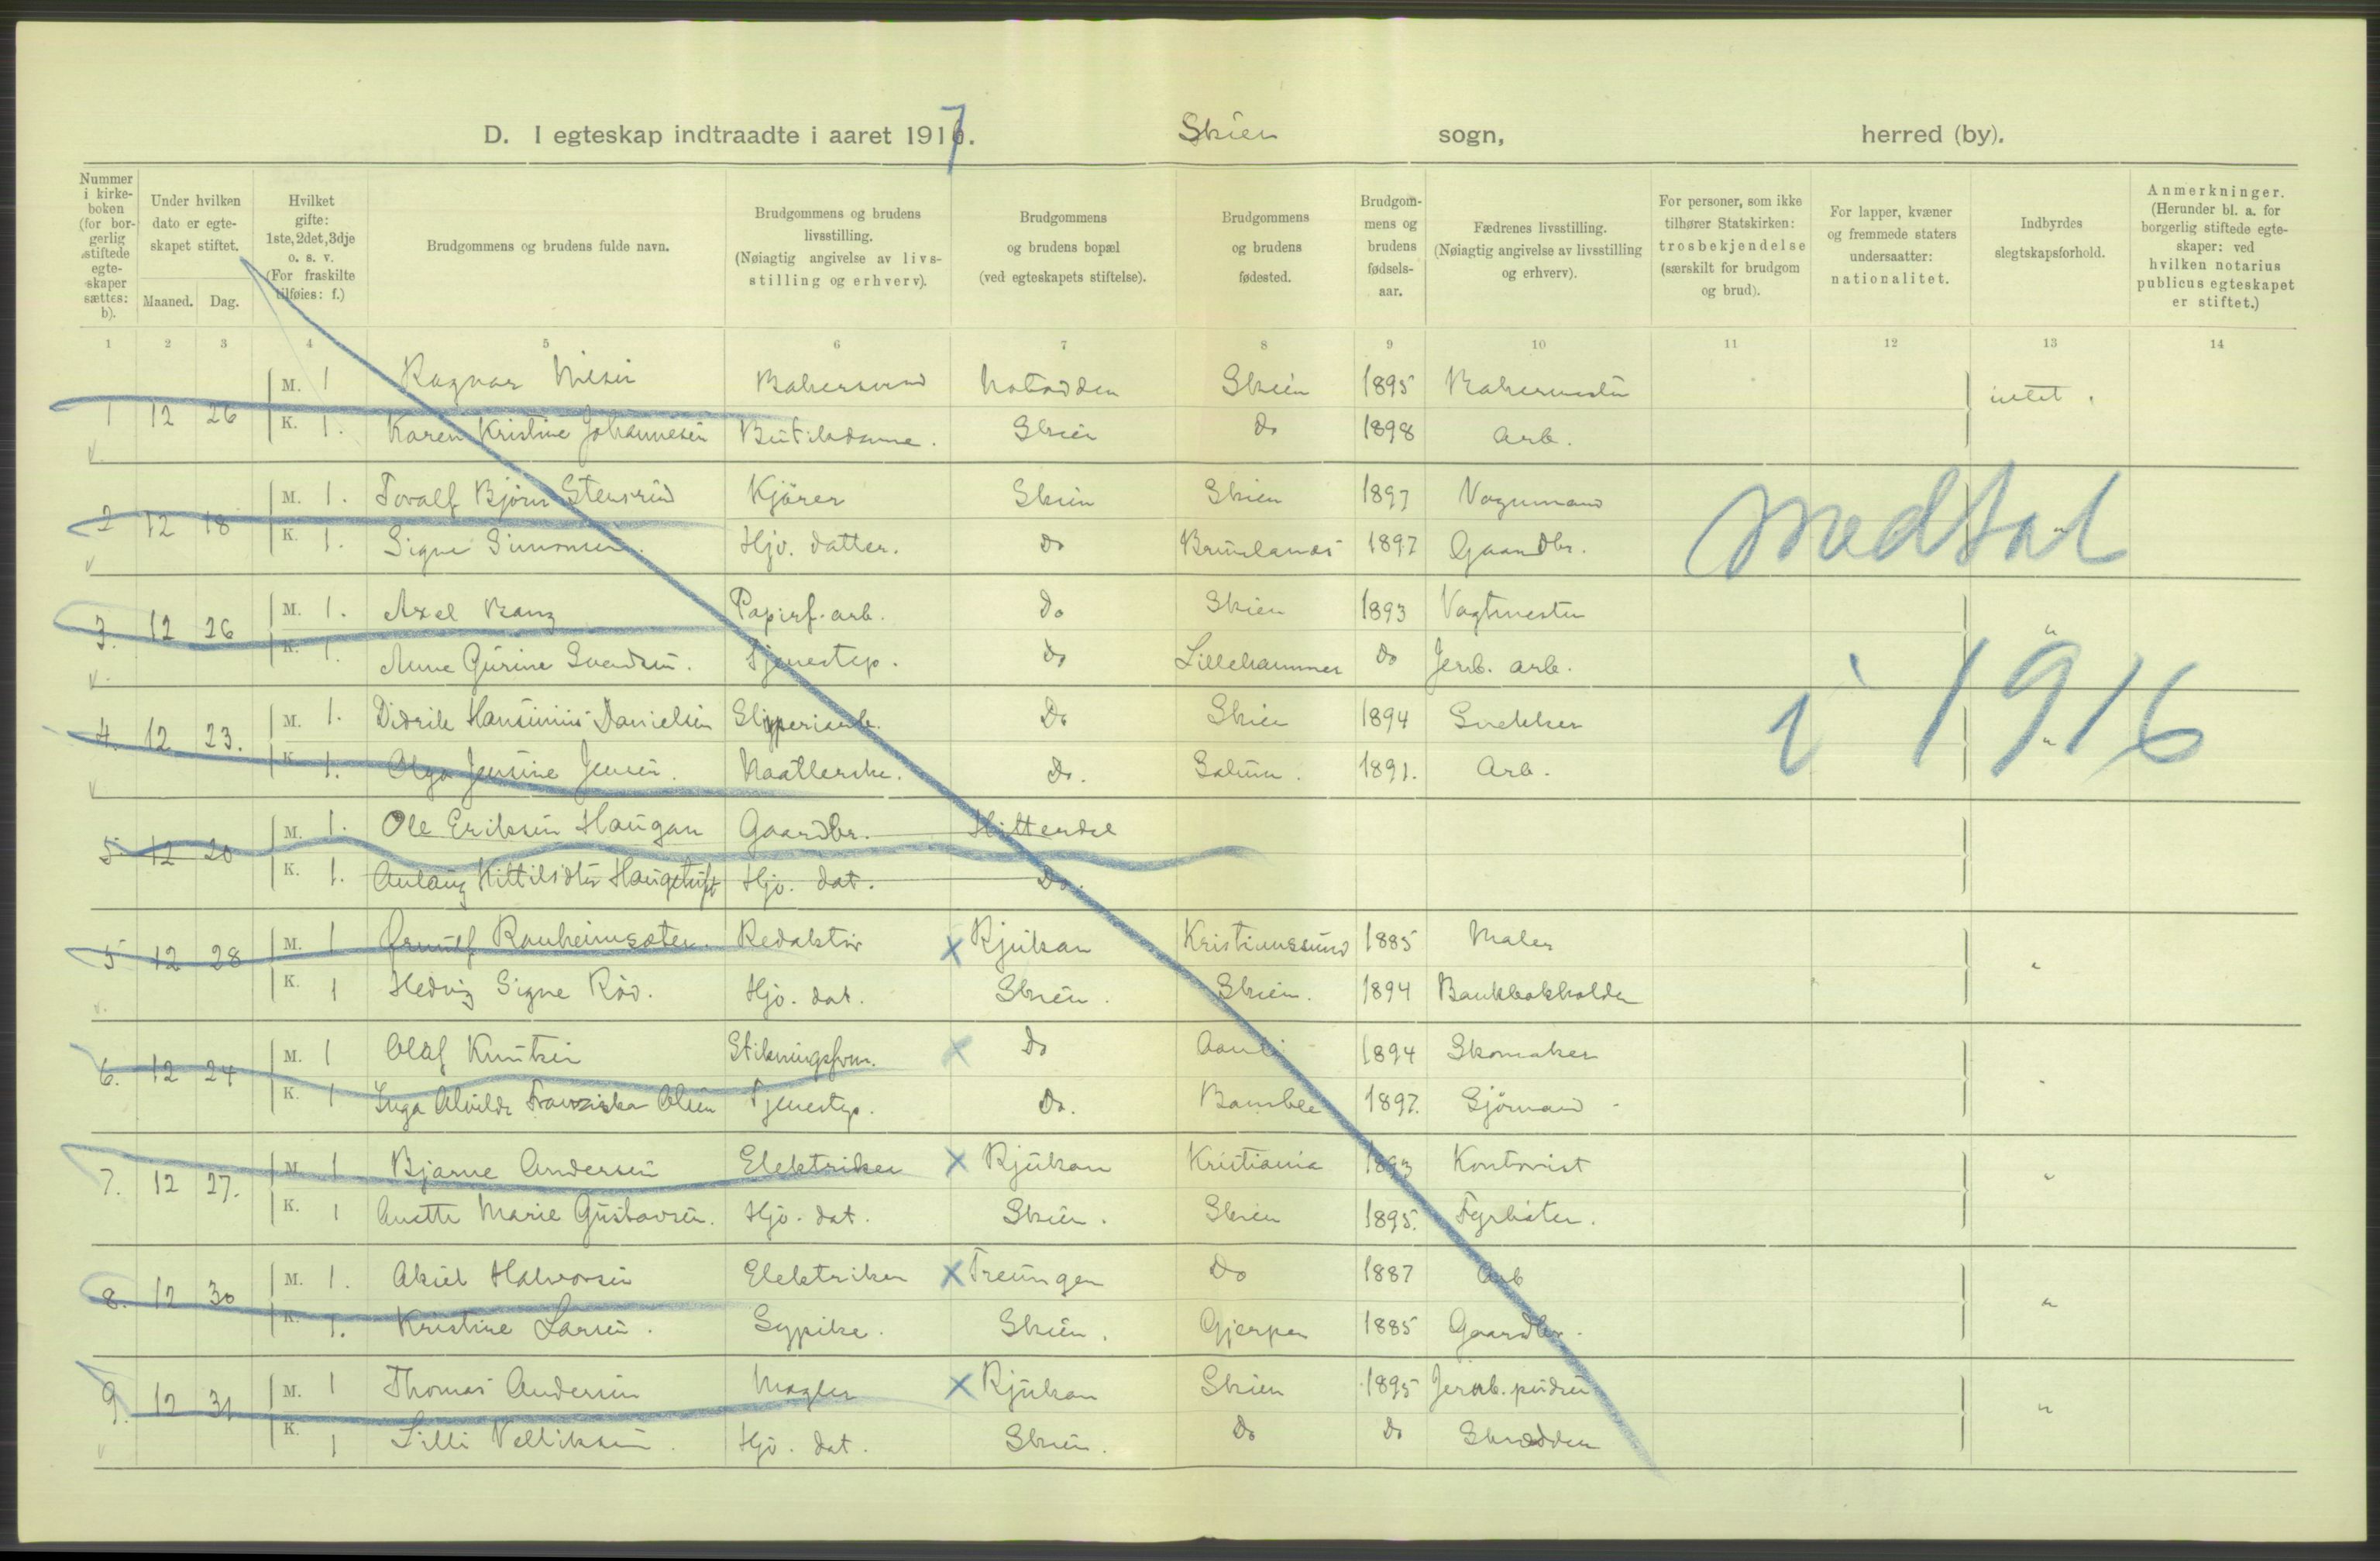 D. I egteskap indtraadte i aaret 1917. Skien sogn, herred (by).
Nummer i kirkeboken (for borgerlig stiftede egteskaper sættes: b).
Under hvilken dato er egteskapet stiftet.
Maaned. Dag.
Hvilket gifte: 1ste, 2det, 3dje o. s. v. (For fraskilte tilføies: f.)
Brudgommens og brudens fulde navn.
Brudgommens og brudens livsstilling. (Nøiagtig angivelse av livsstilling og erhverv).
Brudgommens og brudens bopæl (ved egteskapets stiftelse).
Brudgommens og brudens fødested.
Brudgommens og brudens fødselsaar.
Fædrenes livsstilling. (Nøiagtig angivelse av livsstilling og erhverv).
For personer, som ikke tilhører Statskirken: trosbekjendelse (særskilt for brudgom og brud).
For lapper, kvæner og fremmede staters undersaatter: nationalitet.
Indbyrdes slegtskapsforhold.
Anmerkninger. (Herunder bl. a. for borgerlig stiftede egteskaper: ved hvilken notarius publicus egteskapet er stiftet.)
1 2 3 4 5 6 7 8 9 10 11 12 13 14
M. 1 Ragnar Nilsen Bakersvend Notodden Skien 1895 Bakermester intet.
1 12 26
K. 1. Karen Kristine Johannesen Butikdame. Skien do 1898 Arb.
M. 1. Toralf Bjørn Stensrud Kjører Skien Skien 1897 Vognmand "
2 12 18
K. 1. Signe Simonsen. Hjv. datter. do Brunlanes 1897 Gaardbr.
medtat
M. 1. Axel Bang Papirf. arb. do Skien 1893 Vagtmester "
3. 12 26
K. 1. Anne Gurine Svendsen. Tjenestep. do Lillehammer do Jernb. arb.
i 1916
M. 1. Didrik Hansinius Danielsen Sliperiarb. Do Skien 1894 Snekker "
4. 12 23.
K. 1. Olga Jensine Jensen. Naatlerske. Do. Solum. 1891. Arb.
M. 1. Ole Eriksen Haugan Gaardbr. Hitterdal
5. 12 20
K. 1. Kittilsdtr Hjv. dat. Do.
M. 1 Ranheimsæter. Redaktør x Rjukan Kristianssund 1885 Maler "
5 12 28
K. 1 Hedvig Signe Rød. Hjv. dat. Skien. Skien. 1894 Bankbokholder
M. 1 Olaf Knutsen Stikningsform. x Do 1894 Skomaker "
6. 12 24
K. 1 Inga Alvilde Franziska Olsen Tjenestep. Do. Bamble 1897. Sjømand
M. 1 Bjarne Andersen Elektriker x Rjukan Kristiania 1893 Kontorist "
7. 12 27.
K. 1 Anette Marie Gustavsen. Hjv. dat. Skien. Skien 1895. Fyrbøter.
M. 1. Aksel Halvorsen Elektriker x Treungen Do 1887 Arb "
8. 12 30
K. 1. Kristine Larsen. Sypike. Skien. Gjerpen 1885 Gaardbr.
M. 1 Thomas Andersen Magler x Rjukan Skien 1895 "
9. 12 31
K. 1 Lilli Hjv. dat. Skien. Do Do Skrædder